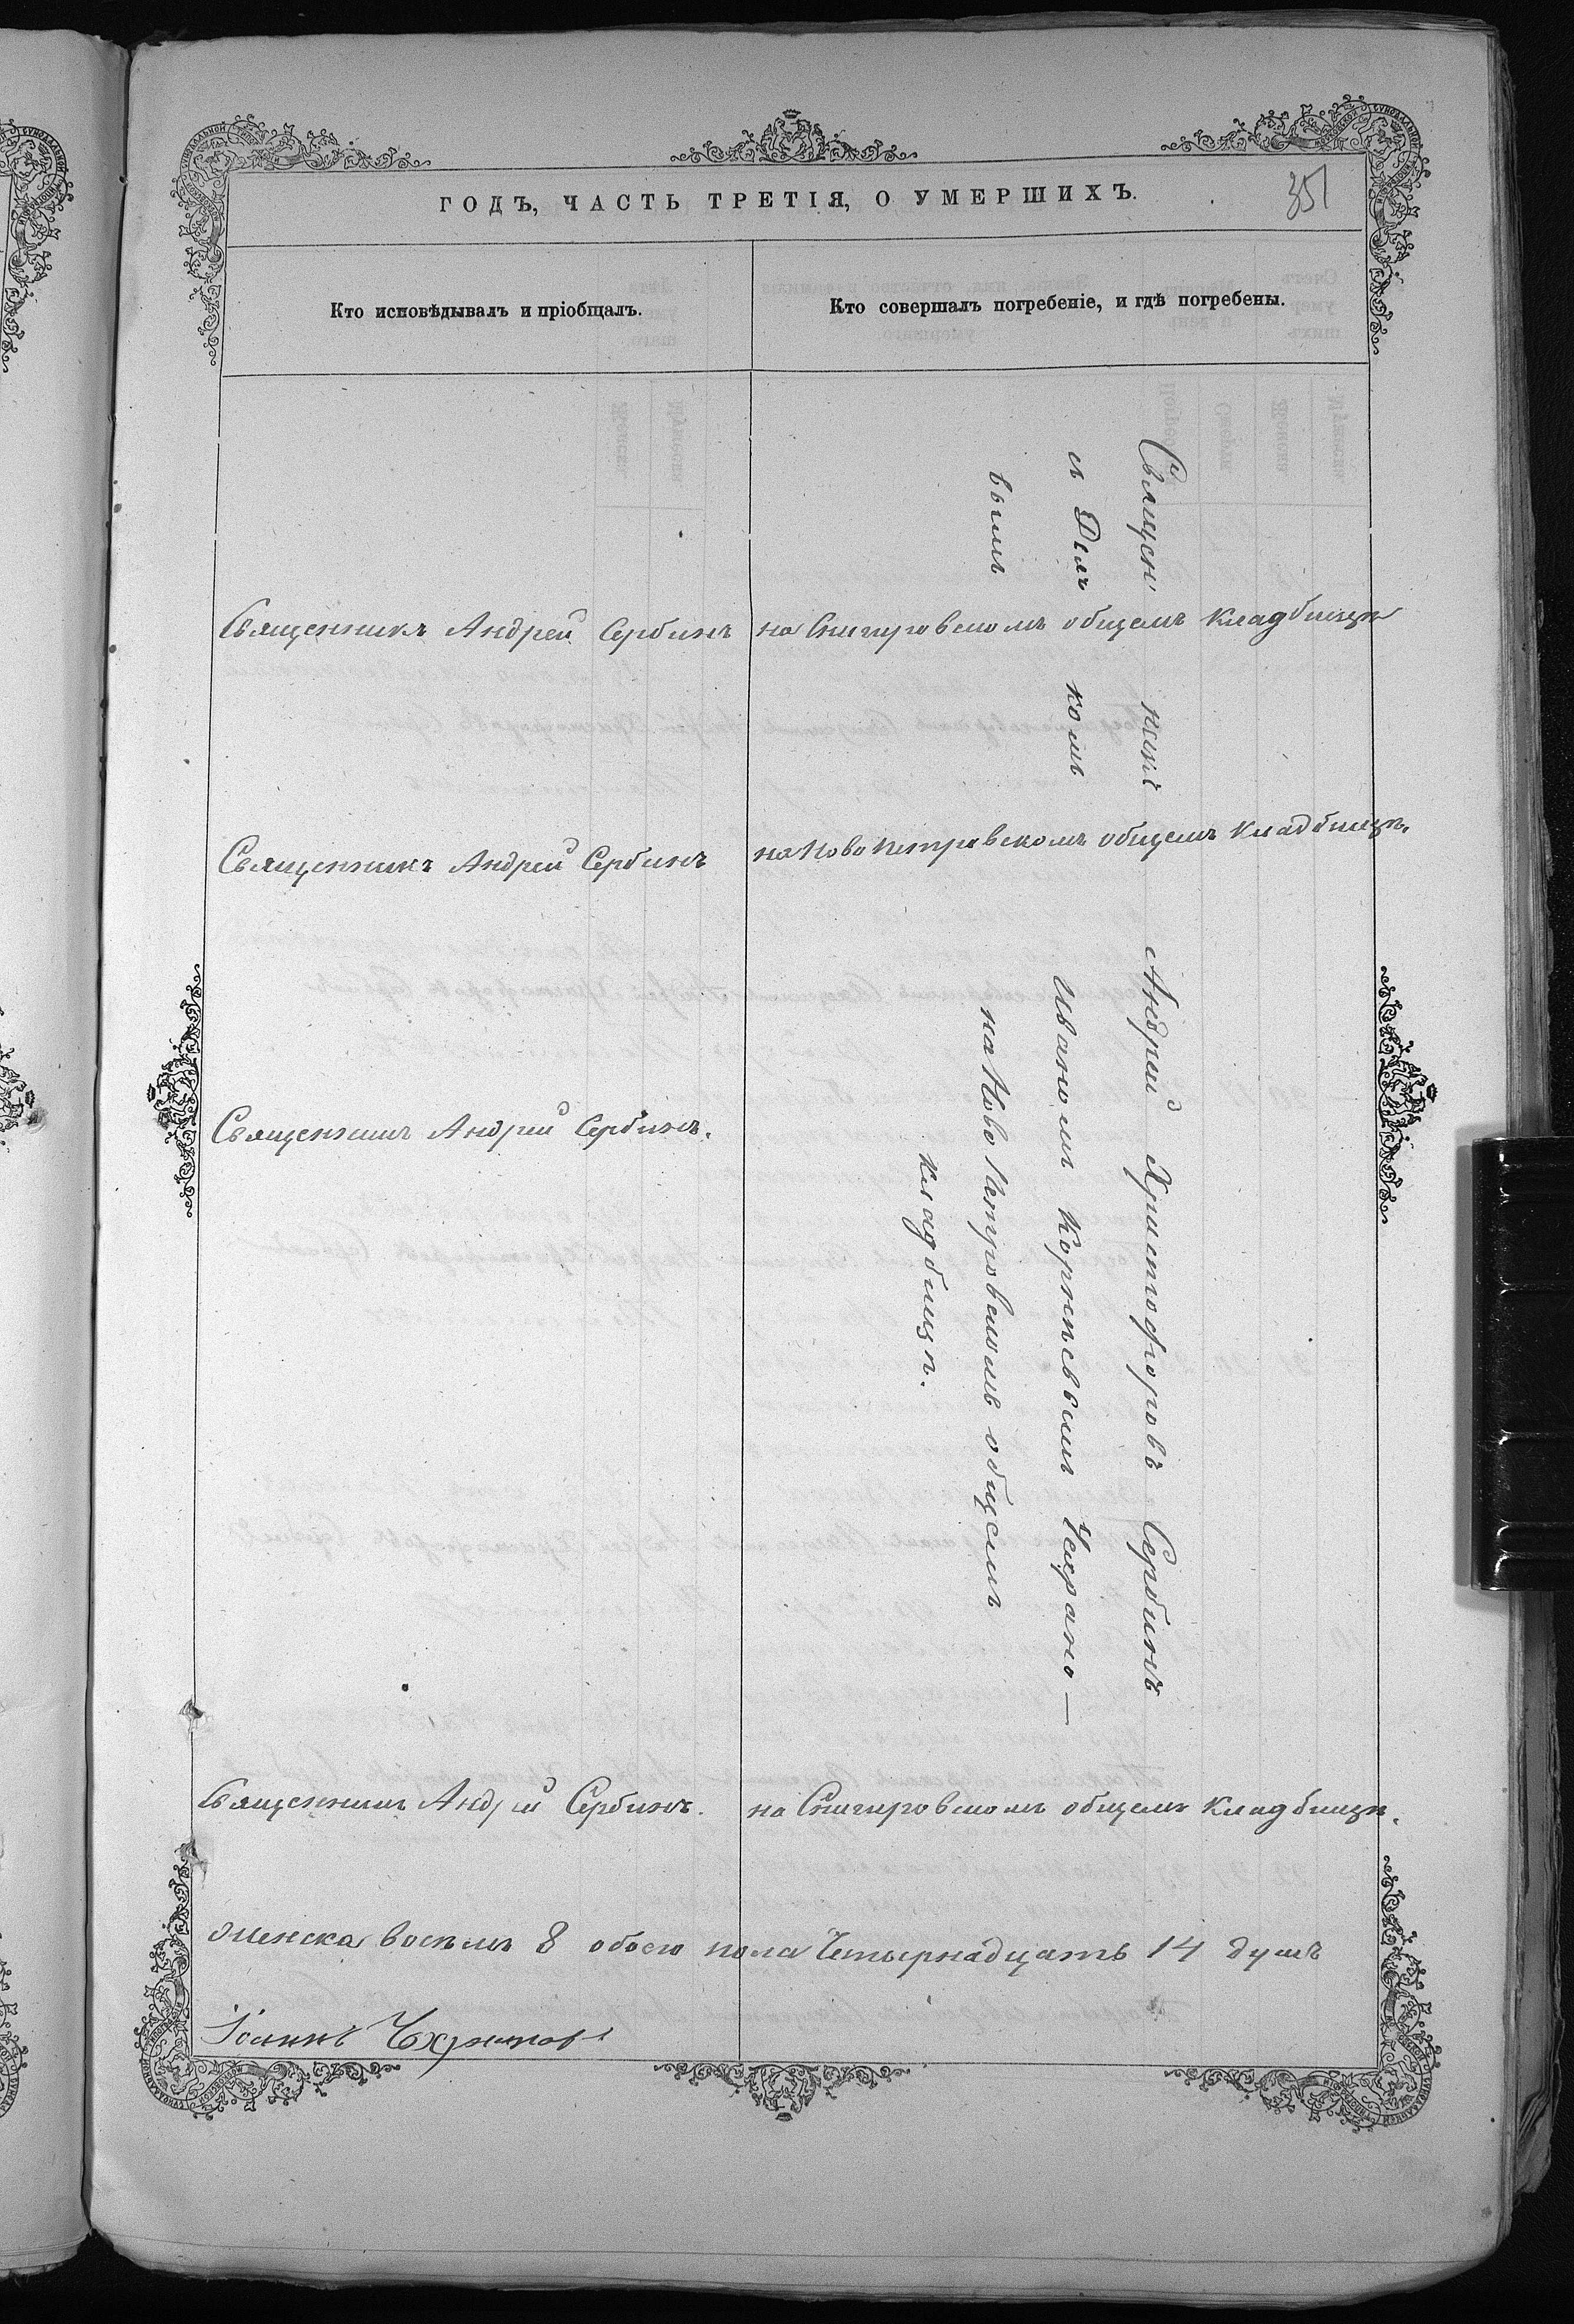 ГОДЪ, ЧАСТЬ ТРЕТІЯ, О УМЕРШИХЪ.
351
Кто исповѣдывалъ и пріобщалъ.
Кто совершалъ погребеніе, и гдѣ погребены.
Священникъ Андрей Сербинъ
на Снигировскомъ общемъ кладбищѣ
Священникъ Андрей Сербинъ
на Ново Петровскомъ общемъ кладбищѣ.
Священникъ Андрей Сербинъ.
Священникъ Андрей Сербинъ.
на Снигировскомъ общемъ кладбищѣ.
Священ никъ Андрей Христофоровъ Сербинъ
съ Дьяч комъ Иваномъ Корнѣевымъ
вымъ на Ново Петровскомъ общемъ
кладбищѣ.
женска восемь 8 обоего пола четырнадцать 14 душъ
Іоаннъ